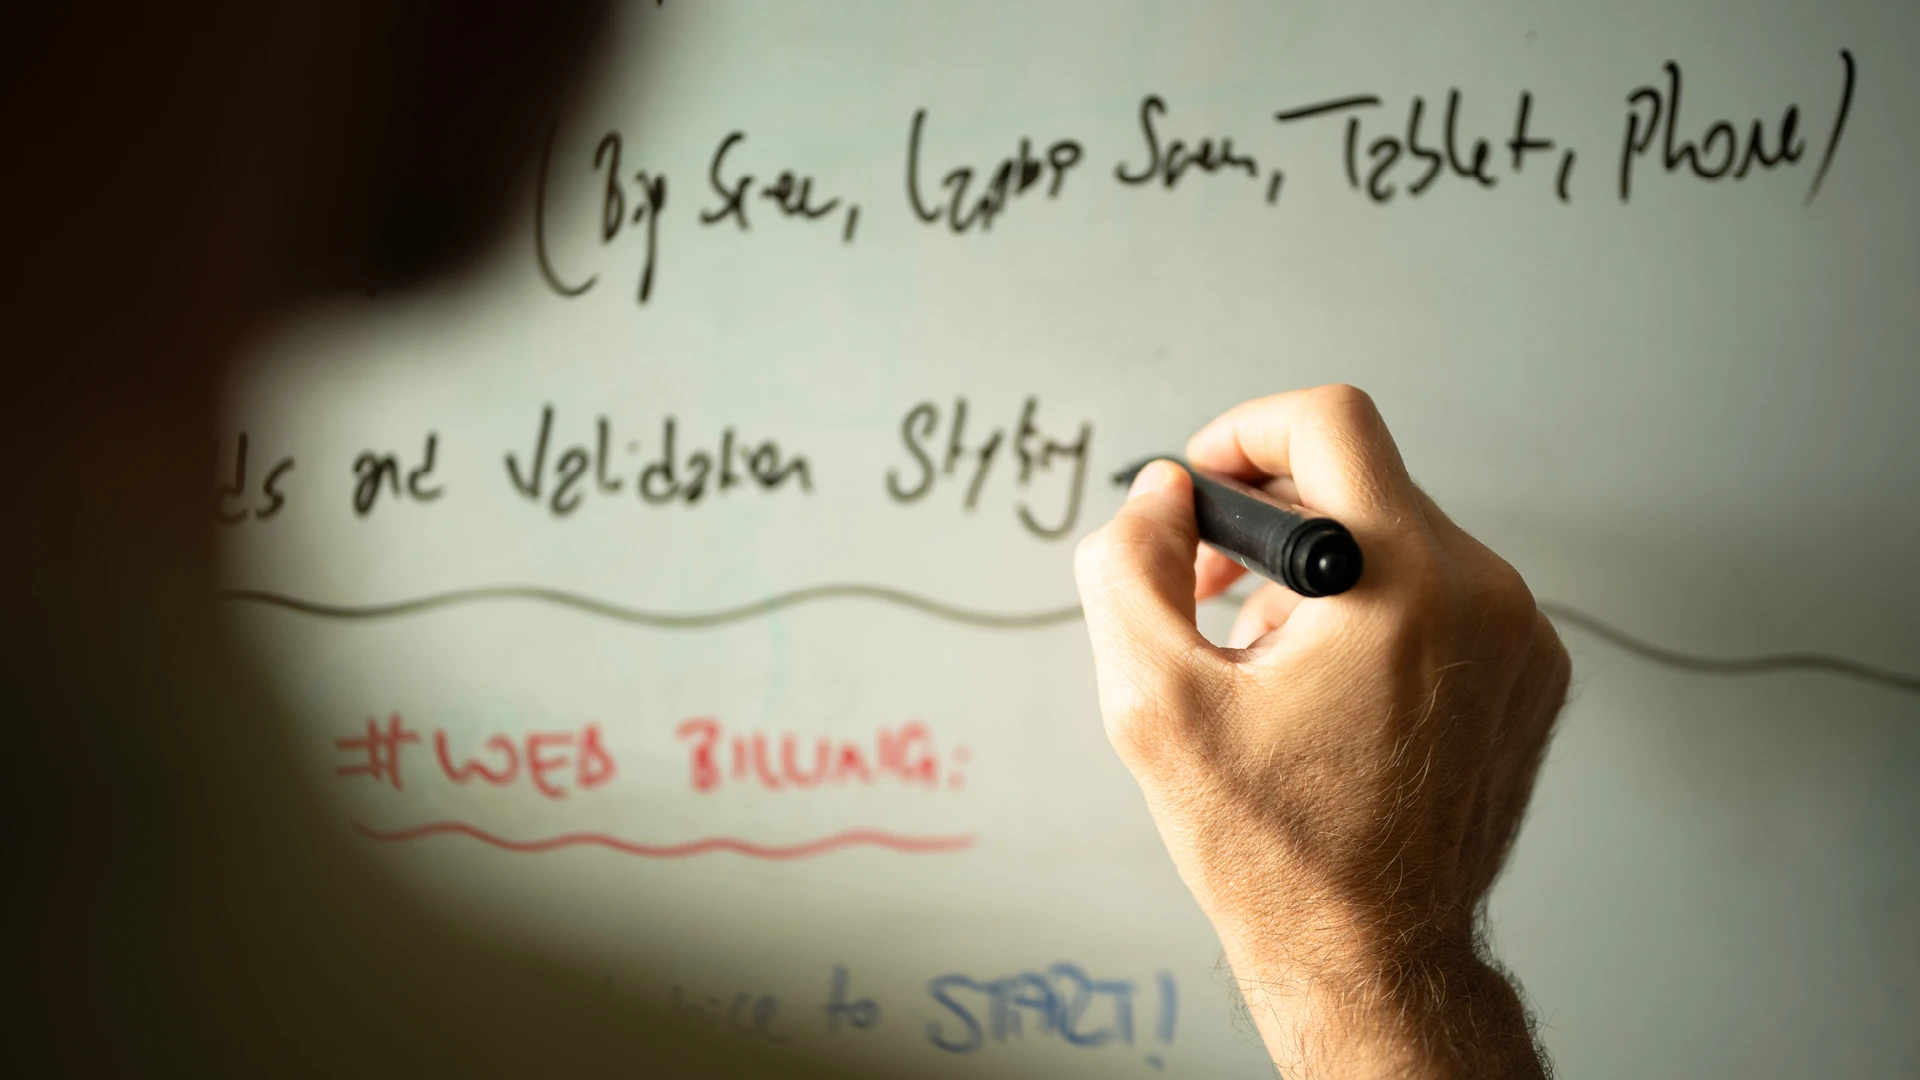 (Big Screen, Laptop Screen, Tablet, Phone)
and Validation Styling
#WEB BILLING:
to START!